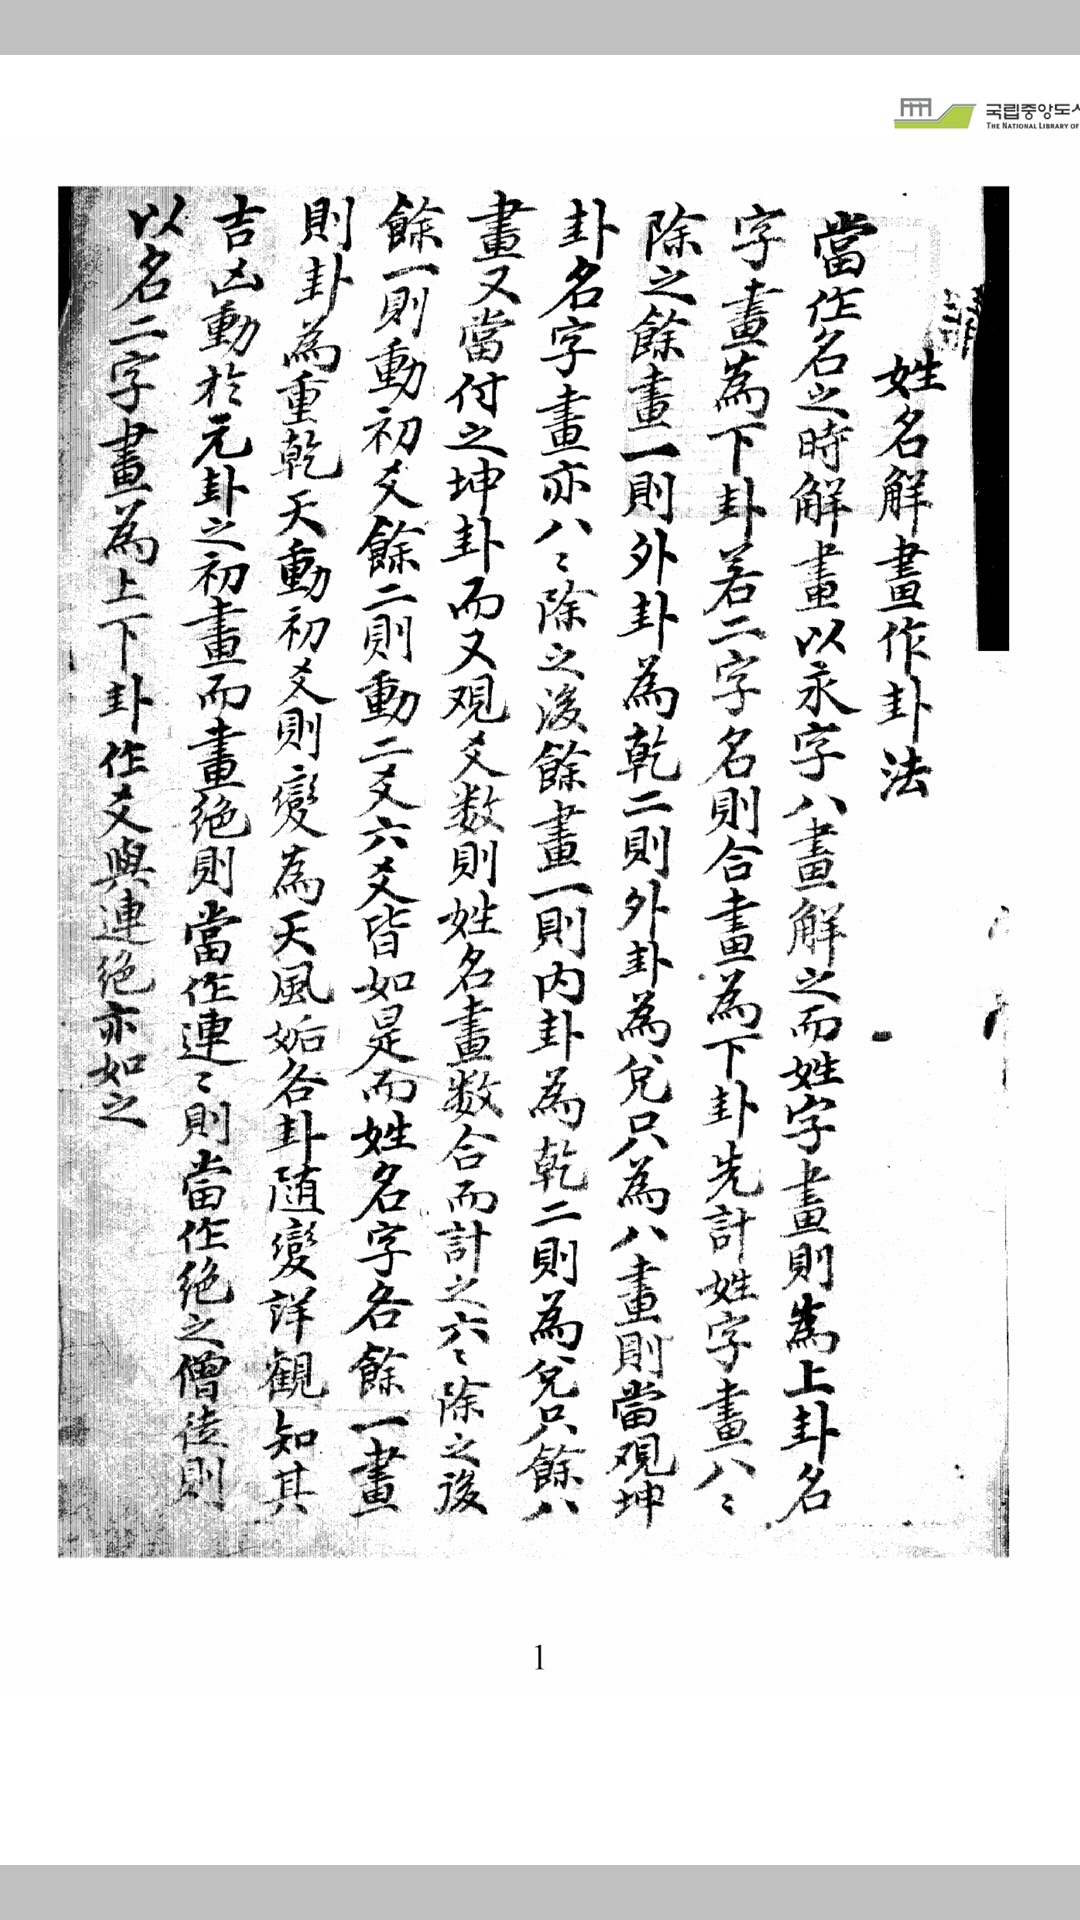 국립중앙도서
THE NATIONAL LIBRARY OF
姓名解畫作卦法
當作名之時解畫以永字八畫解之而姓字畫則為上卦名
字畫為下卦若二字名則合畫為下卦先計姓字畫八〻
除之餘畫一則外卦為乾二則外卦為兌只為八畫則當观坤
卦名字畫亦八〻除之後餘畫一則内卦為乾二則為兌只餘八
畫又當付之坤卦而又观爻数則姓名畫数合而計之六〻除之後
餘一則動初爻餘二則動二爻六爻皆如是而姓名字各餘一畫
則卦為重乾天動初爻則變為天風姤各卦随變詳観知其
吉凶動於元卦之初畫而畫絶則當作連〻則當作絶之僧徒則
以名二字畫為上下卦作爻與連絶亦如之
1